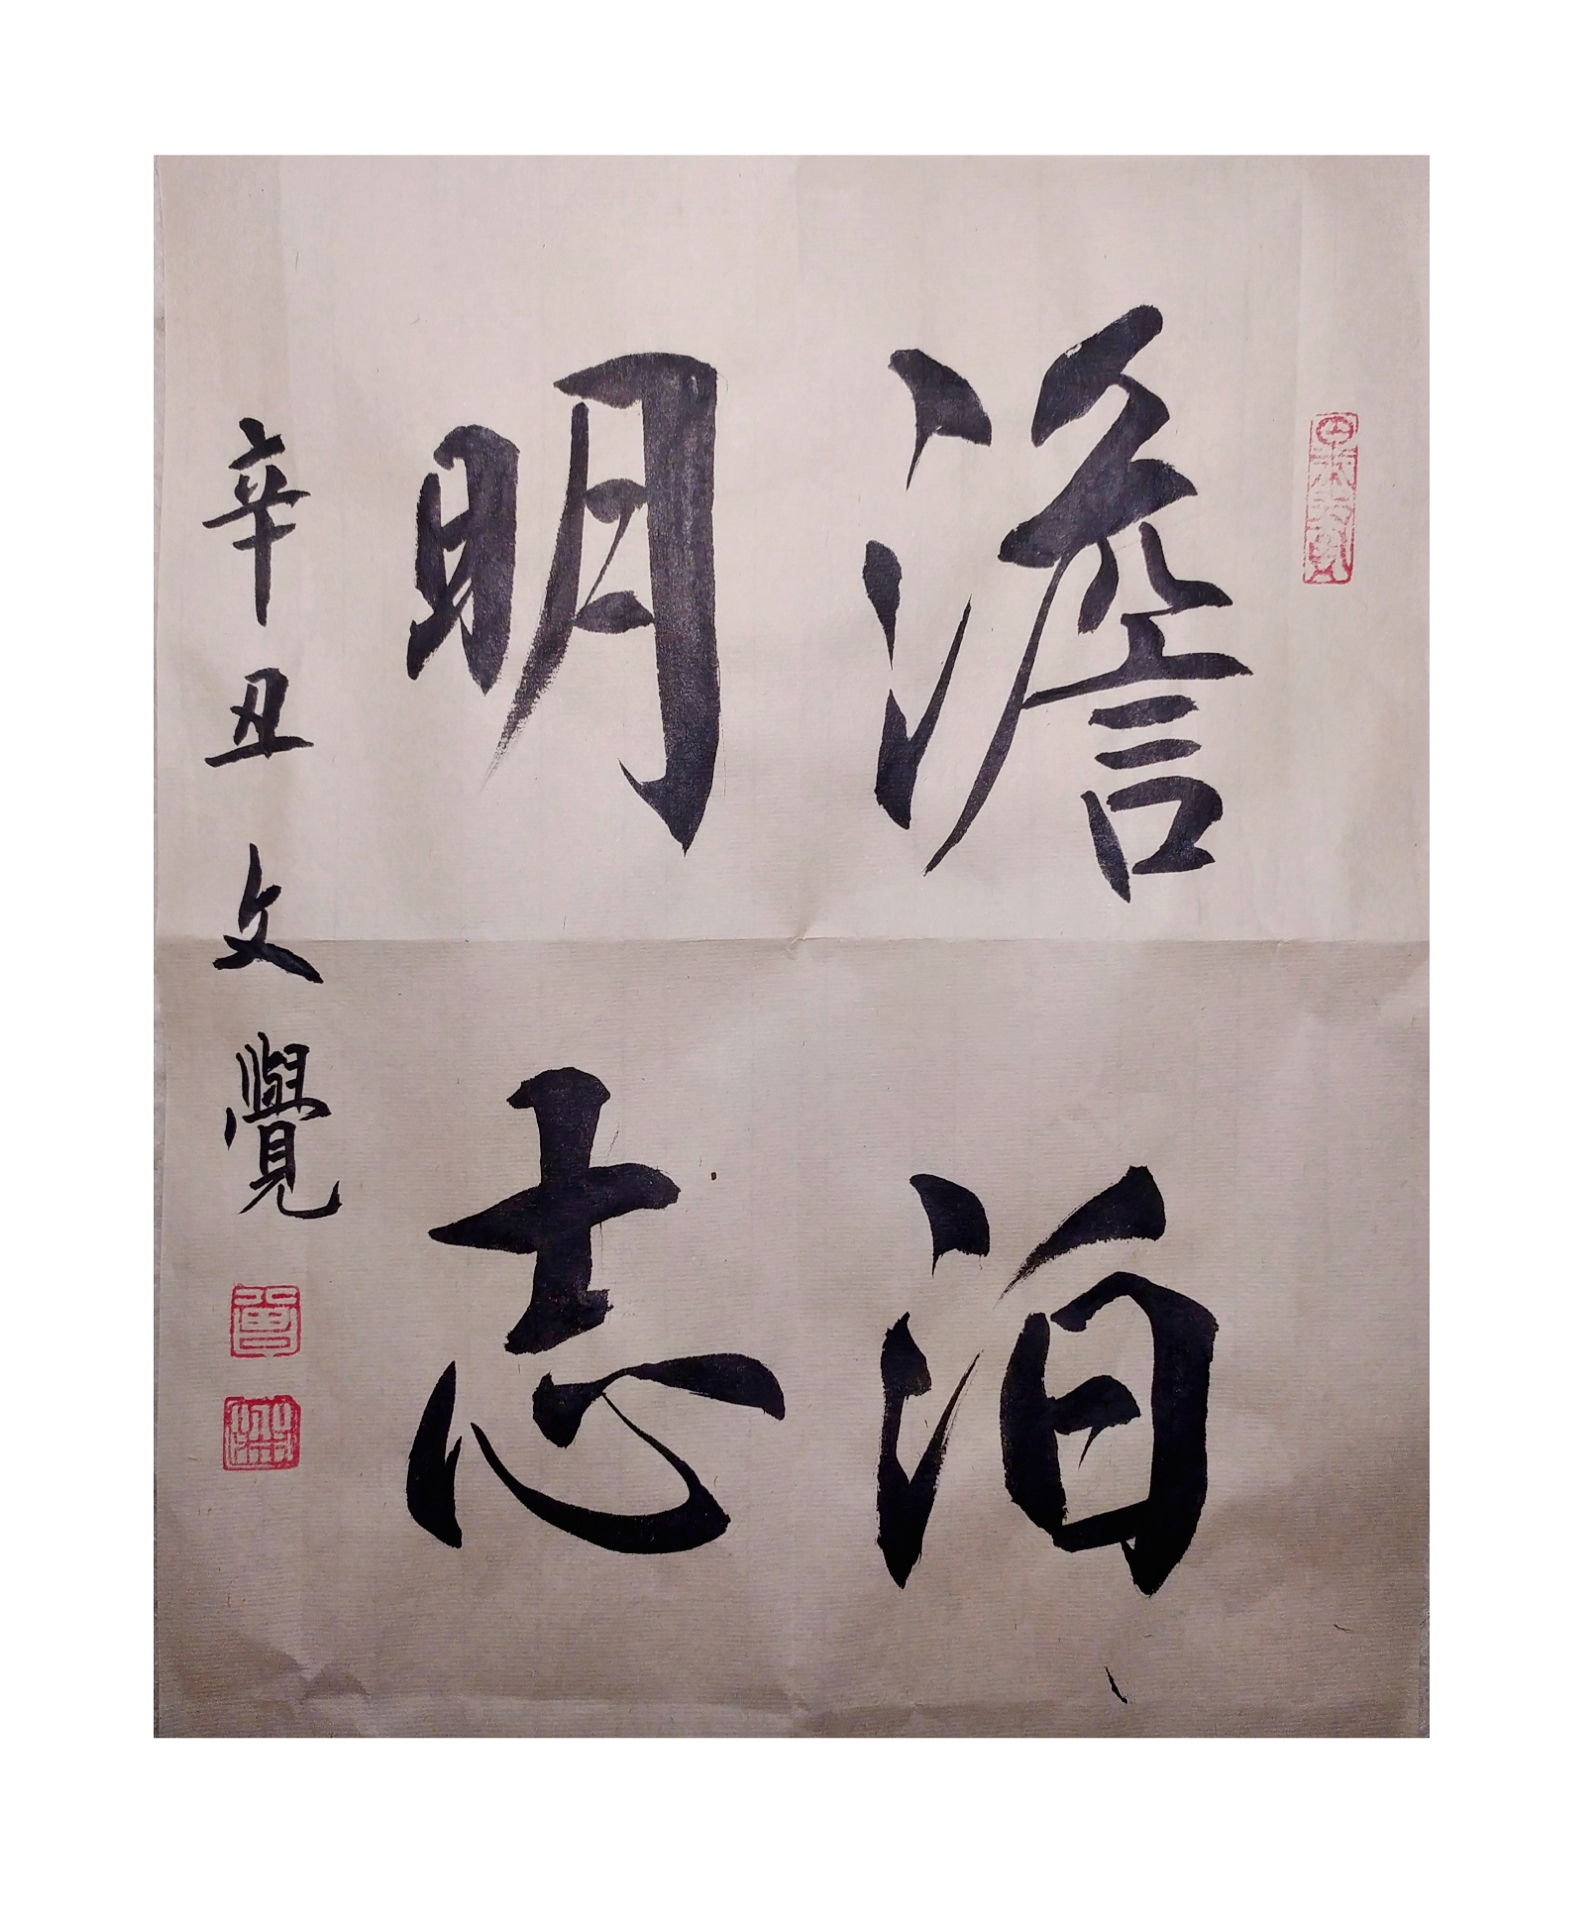 澹泊
明志
辛丑文覺